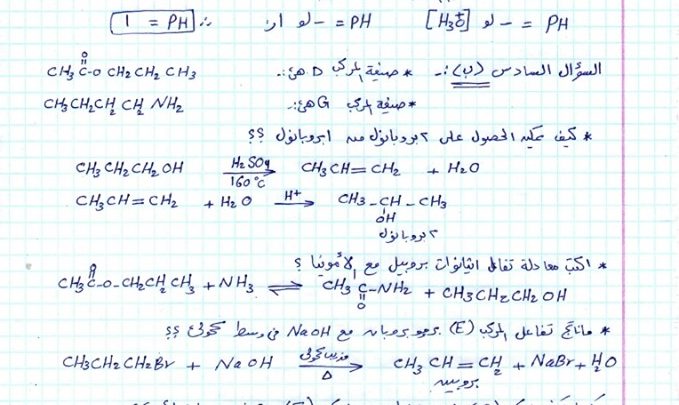 PH = - لو [H3O+] PH = - لو 10-1 ∴ PH = 1
السؤال السادس (ب):- * صيغة المركب D هي:- CH3 C(=O)-O CH2 CH2 CH3
* صيغة المركب G هي:- CH3CH2CH2 CH2 NH2
* كيف يمكن الحصول على 2 بروبانول من 1 بروبانول ؟؟
CH3CH2CH2OH H2SO4 160°C → CH3CH=CH2 + H2O
CH3CH=CH2 + H2O H+ → CH3-CH-CH3
OH
2 بروبانول
* اكتب معادلة تفاعل ايثانوات بروبيل مع الأمونيا ؟
CH3C(=O)-O-CH2CH2CH3 + NH3 ⇌ CH3C(=O)-NH2 + CH3CH2CH2OH
* ماناتج تفاعل المركب (E) برومو بروبان مع NaOH في وسط كحولي ؟؟
CH3CH2CH2Br + NaOH مذيب كحولي Δ → CH3CH=CH2 + NaBr + H2O
بروبين